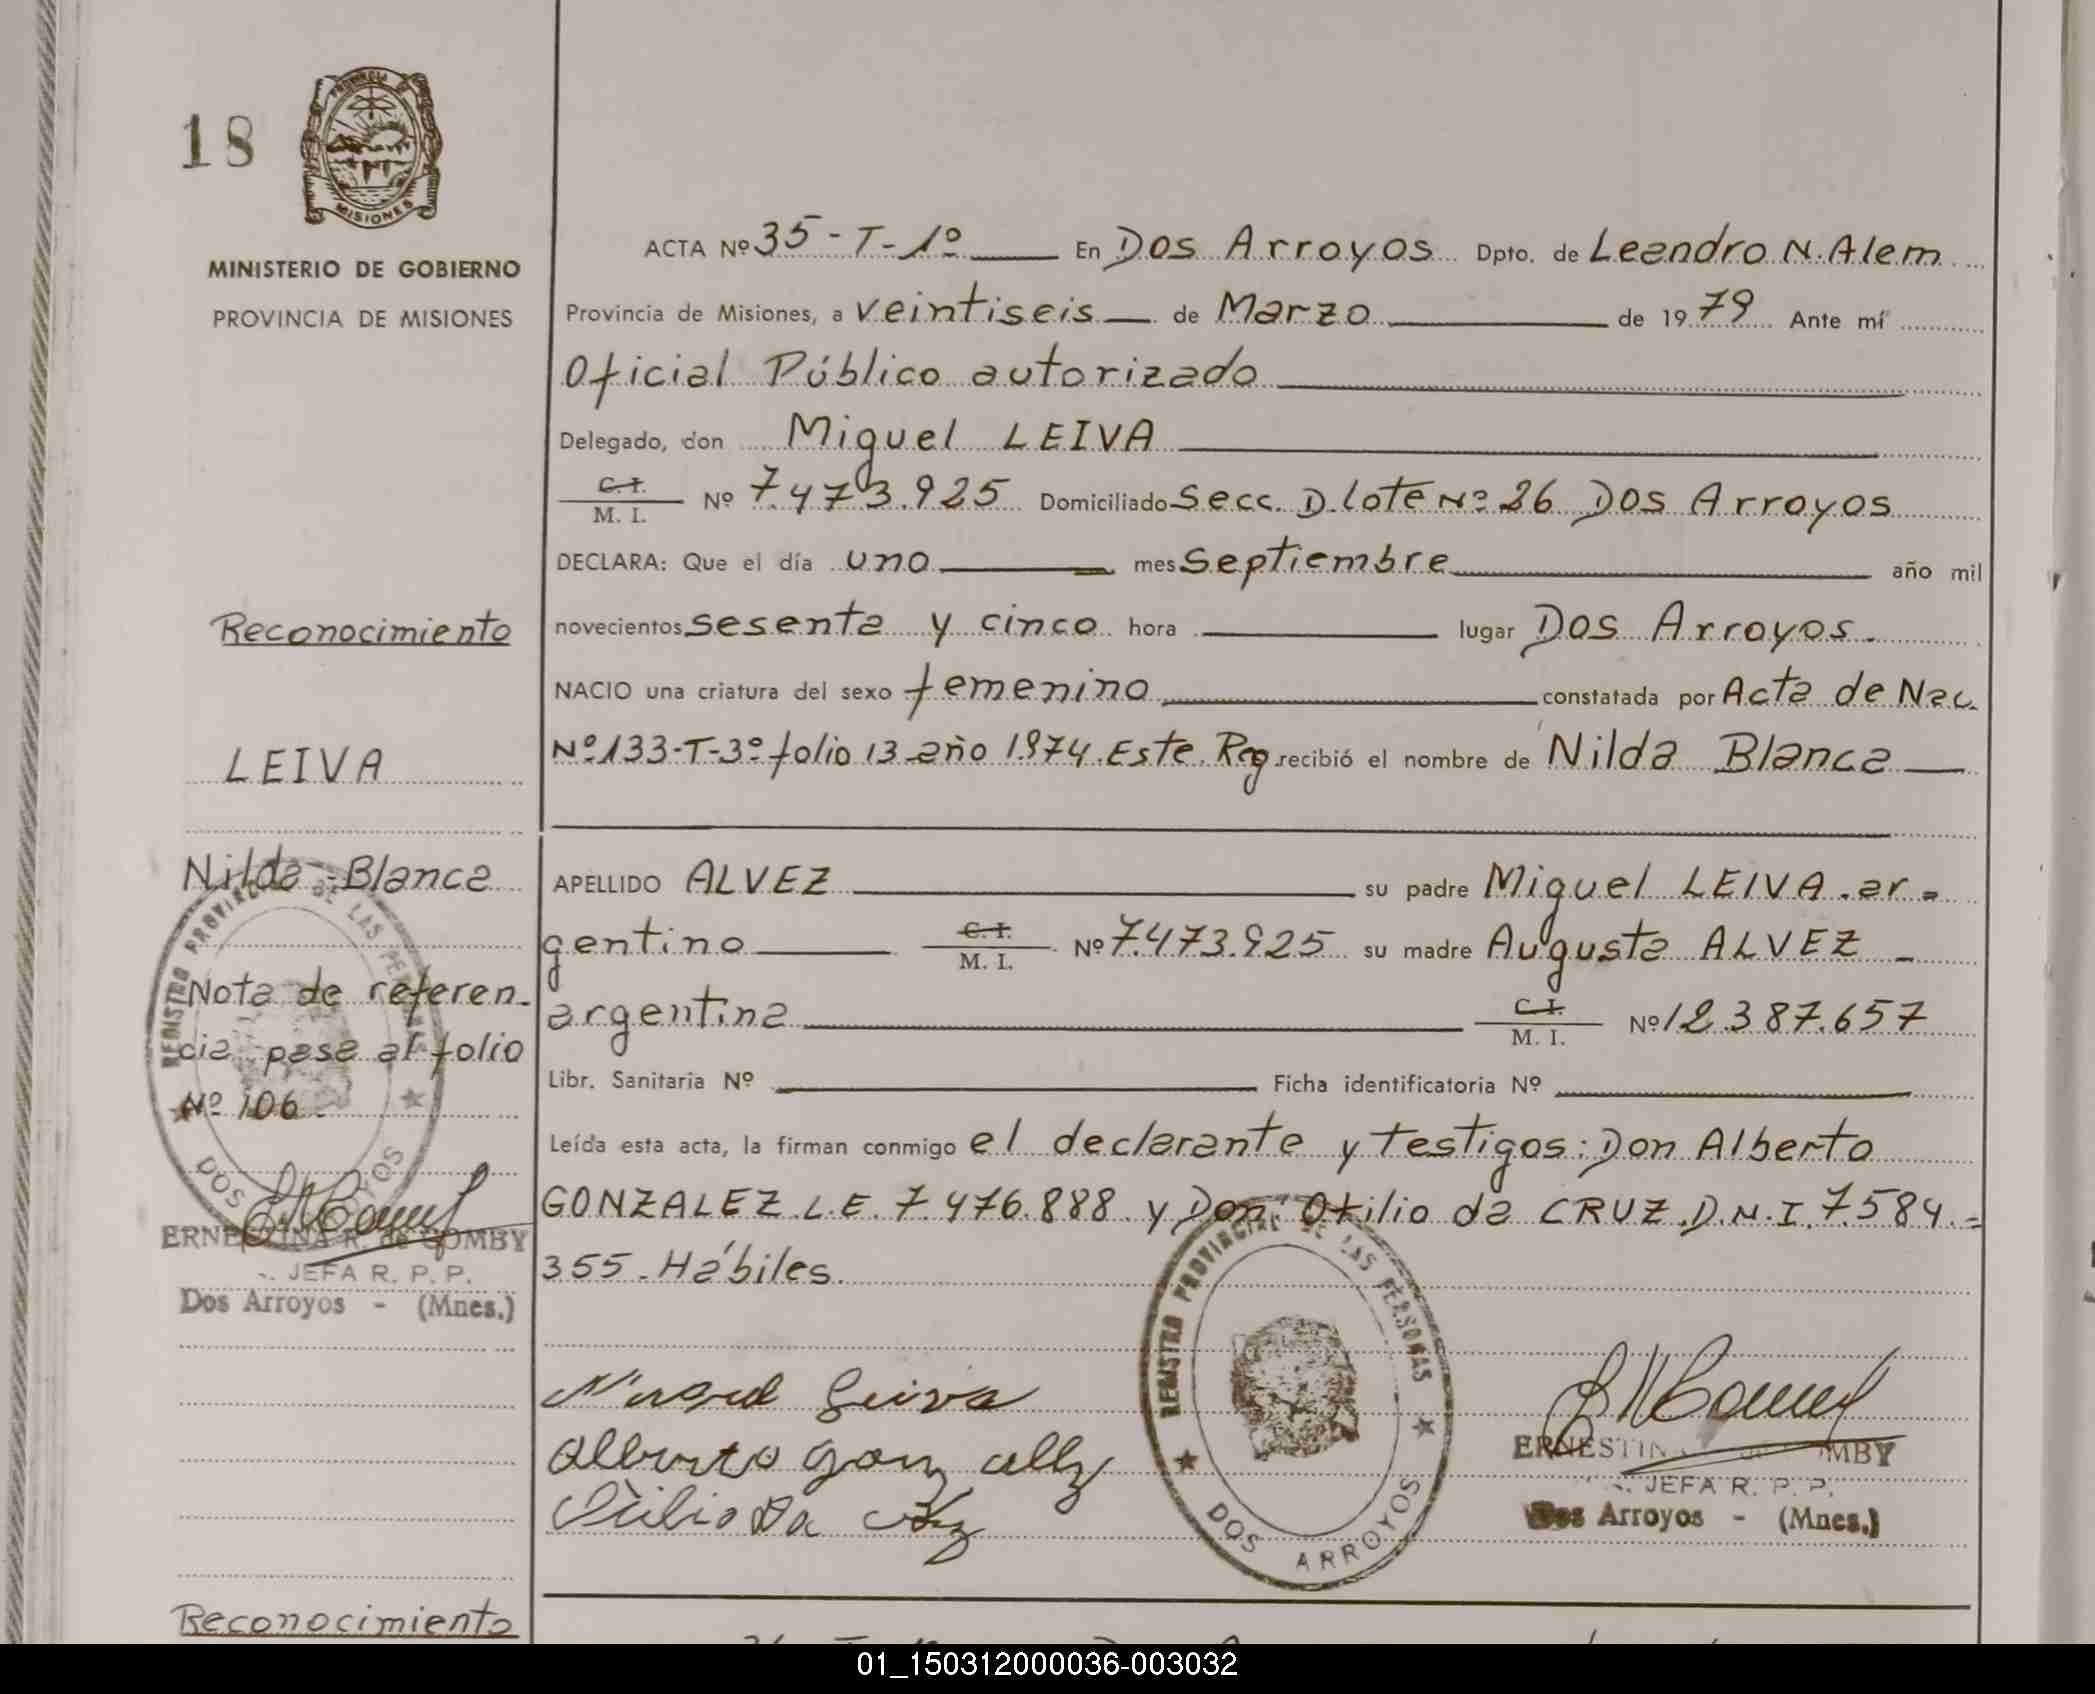 18
PROVINCIA DE
MISIONES
MINISTERIO DE GOBIERNO
PROVINCIA DE MISIONES
ACTA Nº 35-T-1º En Dos Arroyos Dpto. de Leandro N. Alem
Provincia de Misiones, a veintiseis de Marzo de 1979 Ante mí
Oficial Público autorizado
Delegado, don Miguel LEIVA
C. I.
M. I. Nº 7.473.925 Domiciliado Secc. D. lote Nº 26 Dos Arroyos
DECLARA: Que el día uno mes Septiembre año mil
novecientos sesenta y cinco hora lugar Dos Arroyos.
NACIO una criatura del sexo femenino constatada por Acta de Nac.
Nº 133-T-3º folio 13 año 1974. Este Reg. recibió el nombre de Nilda Blanca
APELLIDO ALVEZ su padre Miguel LEIVA. ar-
gentino C. I. M. I. Nº 7.473.925 su madre Augusta ALVEZ -
argentina C. I. M. I. Nº 12.387.657
Libr. Sanitaria Nº Ficha identificatoria Nº
Leída esta acta, la firman conmigo el declarante y testigos: Don Alberto
GONZALEZ L.E. 7.476.888 y Don Otilio da CRUZ. D.N.I. 7.584.=
355. Hábiles.
Reconocimiento
LEIVA
Nilda Blanca
Nota de referen-
cia pasa al folio
Nº 106.
REGISTRO PROVINCIAL DE LAS PERSONAS
DOS ARROYOS
ERNESTINA R. de GOMBY
JEFA R. P. P.
Dos Arroyos - (Mnes.)
Miguel Leiva
Alberto Gonzalez
Otilio Da
REGISTRO PROVINCIAL DE LAS PERSONAS
DOS ARROYOS
ERNESTINA de GOMBY
JEFA R. P. P.
Dos Arroyos - (Mnes.)
Reconocimiento
01_150312000036-003032